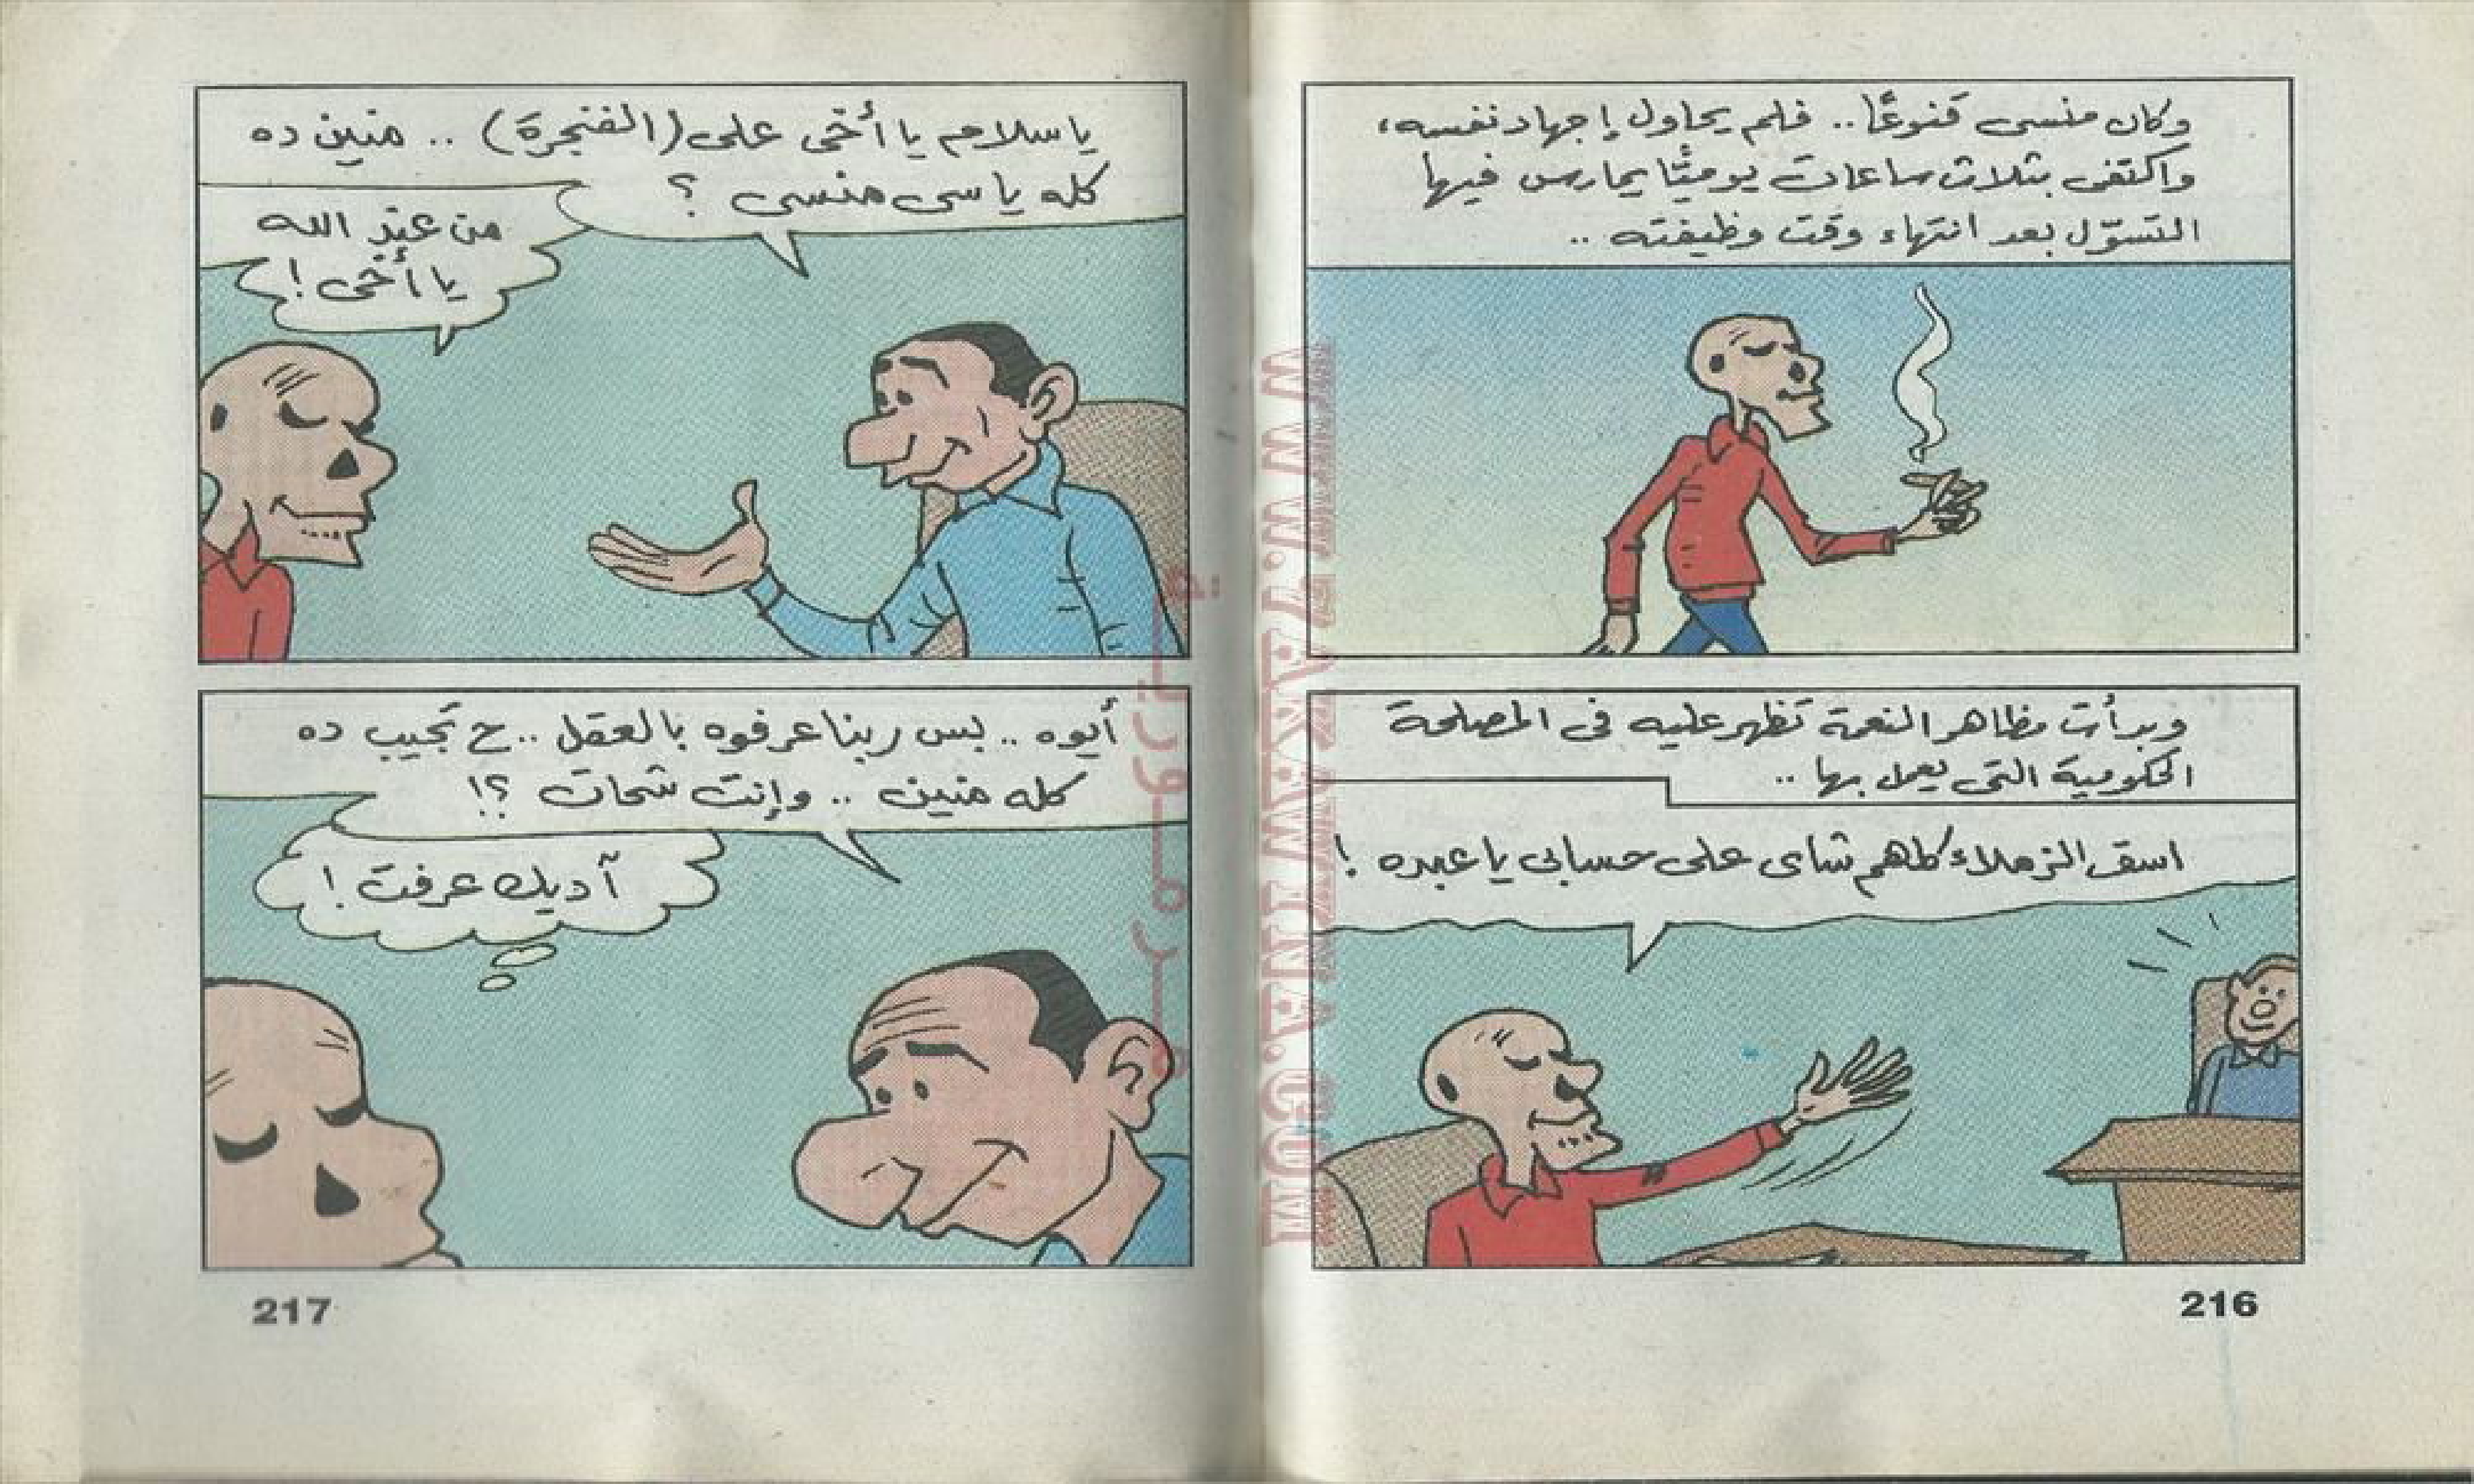 وكان منسى قنوعًا.. فلم يحاول إجهاد نفسه،
واكتفى بثلاث ساعات يوميًّا يمارس فيها
التسوّل بعد انتهاء وقت وظيفته ..
وبدأت مظاهر النعمة تظهر عليه فى المصلحة
الحكومية التى يعمل بها ..
اسق الزملاء كلهم شاى على حسابى يا عبده !
216
يا سلام يا أخى على (الفنجرة) .. منين ده
كله يا سى منسى ؟
من عند الله
يا أخى !
أيوه .. بس ربنا عرفوه بالعقل .. ح تجيب ده
كله منين .. وإنت شحات ؟!
آديك عرفت !
217
WWW.ARMANIA.COM